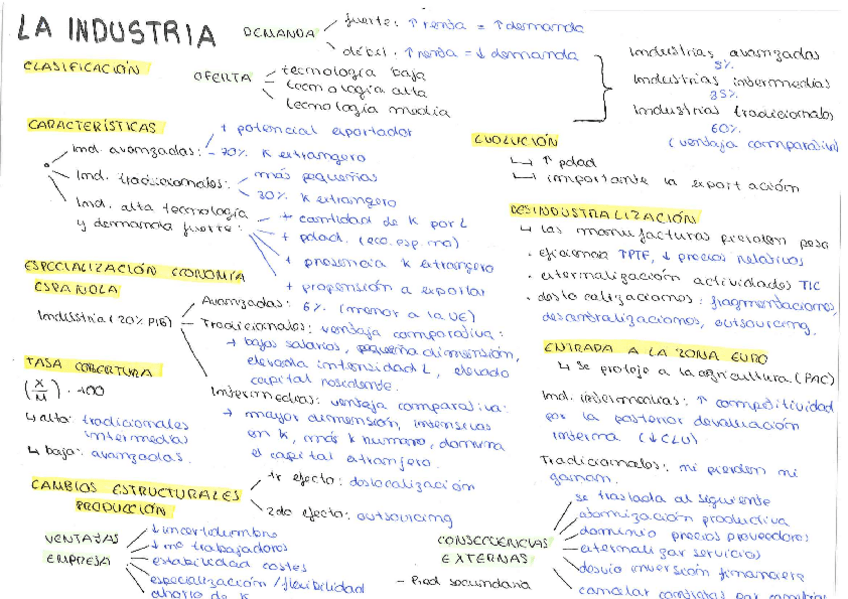 LA INDUSTRIA
DEMANDA
fuerte: ↑ renta = ↑ demanda
débil: ↑ renta = ↓ demanda
CLASIFICACIÓN
OFERTA
tecnología baja
tecnología alta
tecnología media
Industrias avanzadas
Industrias intermedias
35%
Industrias tradicionales
60%
(ventaja comparativa)
CARACTERÍSTICAS
Ind. avanzadas:
+ potencial exportador
- 70% K extranjero
Ind. tradicionales:
más pequeñas
30% K extranjero
Ind. alta tecnología
y demanda fuerte:
+ cantidad de K por L
+ pdad. (eco. esp. no)
+ presencia K extranjero
+ propensión a exportar
EVOLUCIÓN
↑ pdad
importante la exportación
DESINDUSTRIALIZACIÓN
↳ las manufacturas pierden peso
· eficiencia ↑PTF, ↓ precios relativos
· externalización actividades TIC
· deslocalizaciones: fragmentaciones,
descentralizaciones, outsourcing.
ESPECIALIZACIÓN ECONOMÍA
ESPAÑOLA
Industria (20% PIB)
Avanzadas: 6% (menor a la UE)
Tradicionales: ventaja comparativa:
→ bajos salarios, pequeña dimensión,
elevada intensidad L, elevado
capital residente.
Intermedias: ventaja comparativa:
→ mayor dimensión, intensivas
en K, más K humano, domina
el capital extranjero.
TASA COBERTURA
(X/M) · 100
↳ alta: tradicionales
intermedias
↳ baja: avanzadas.
ENTRADA A LA ZONA EURO
↳ se protege a la agricultura (PAC)
Ind. intermedias: ↑ competitividad
por la posterior devaluación
interna (↓CLU)
Tradicionales: ni pierden ni
ganan.
CAMBIOS ESTRUCTURALES
PRODUCCIÓN
1r efecto: deslocalización
2do efecto: outsourcing
VENTAJAS
EMPRESA
↓ incertidumbre
↓ nº trabajadores
estabilidad costes
especialización / flexibilidad
ahorro de K
CONSECUENCIAS
EXTERNAS
se traslada al siguiente
atomización productiva
dominio precios proveedores
externalizar servicios
desvío inversión financiera
- Pred. secundaria